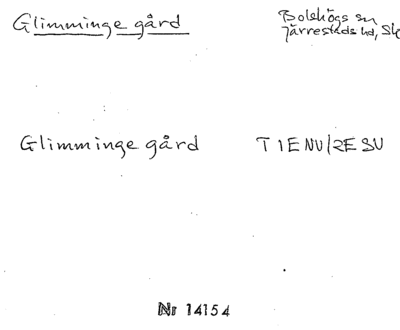 Glimminge gård
Bolshögs sn
Järrestads hd, Sk
Glimminge gård TIENU/RESU
Nr 14154